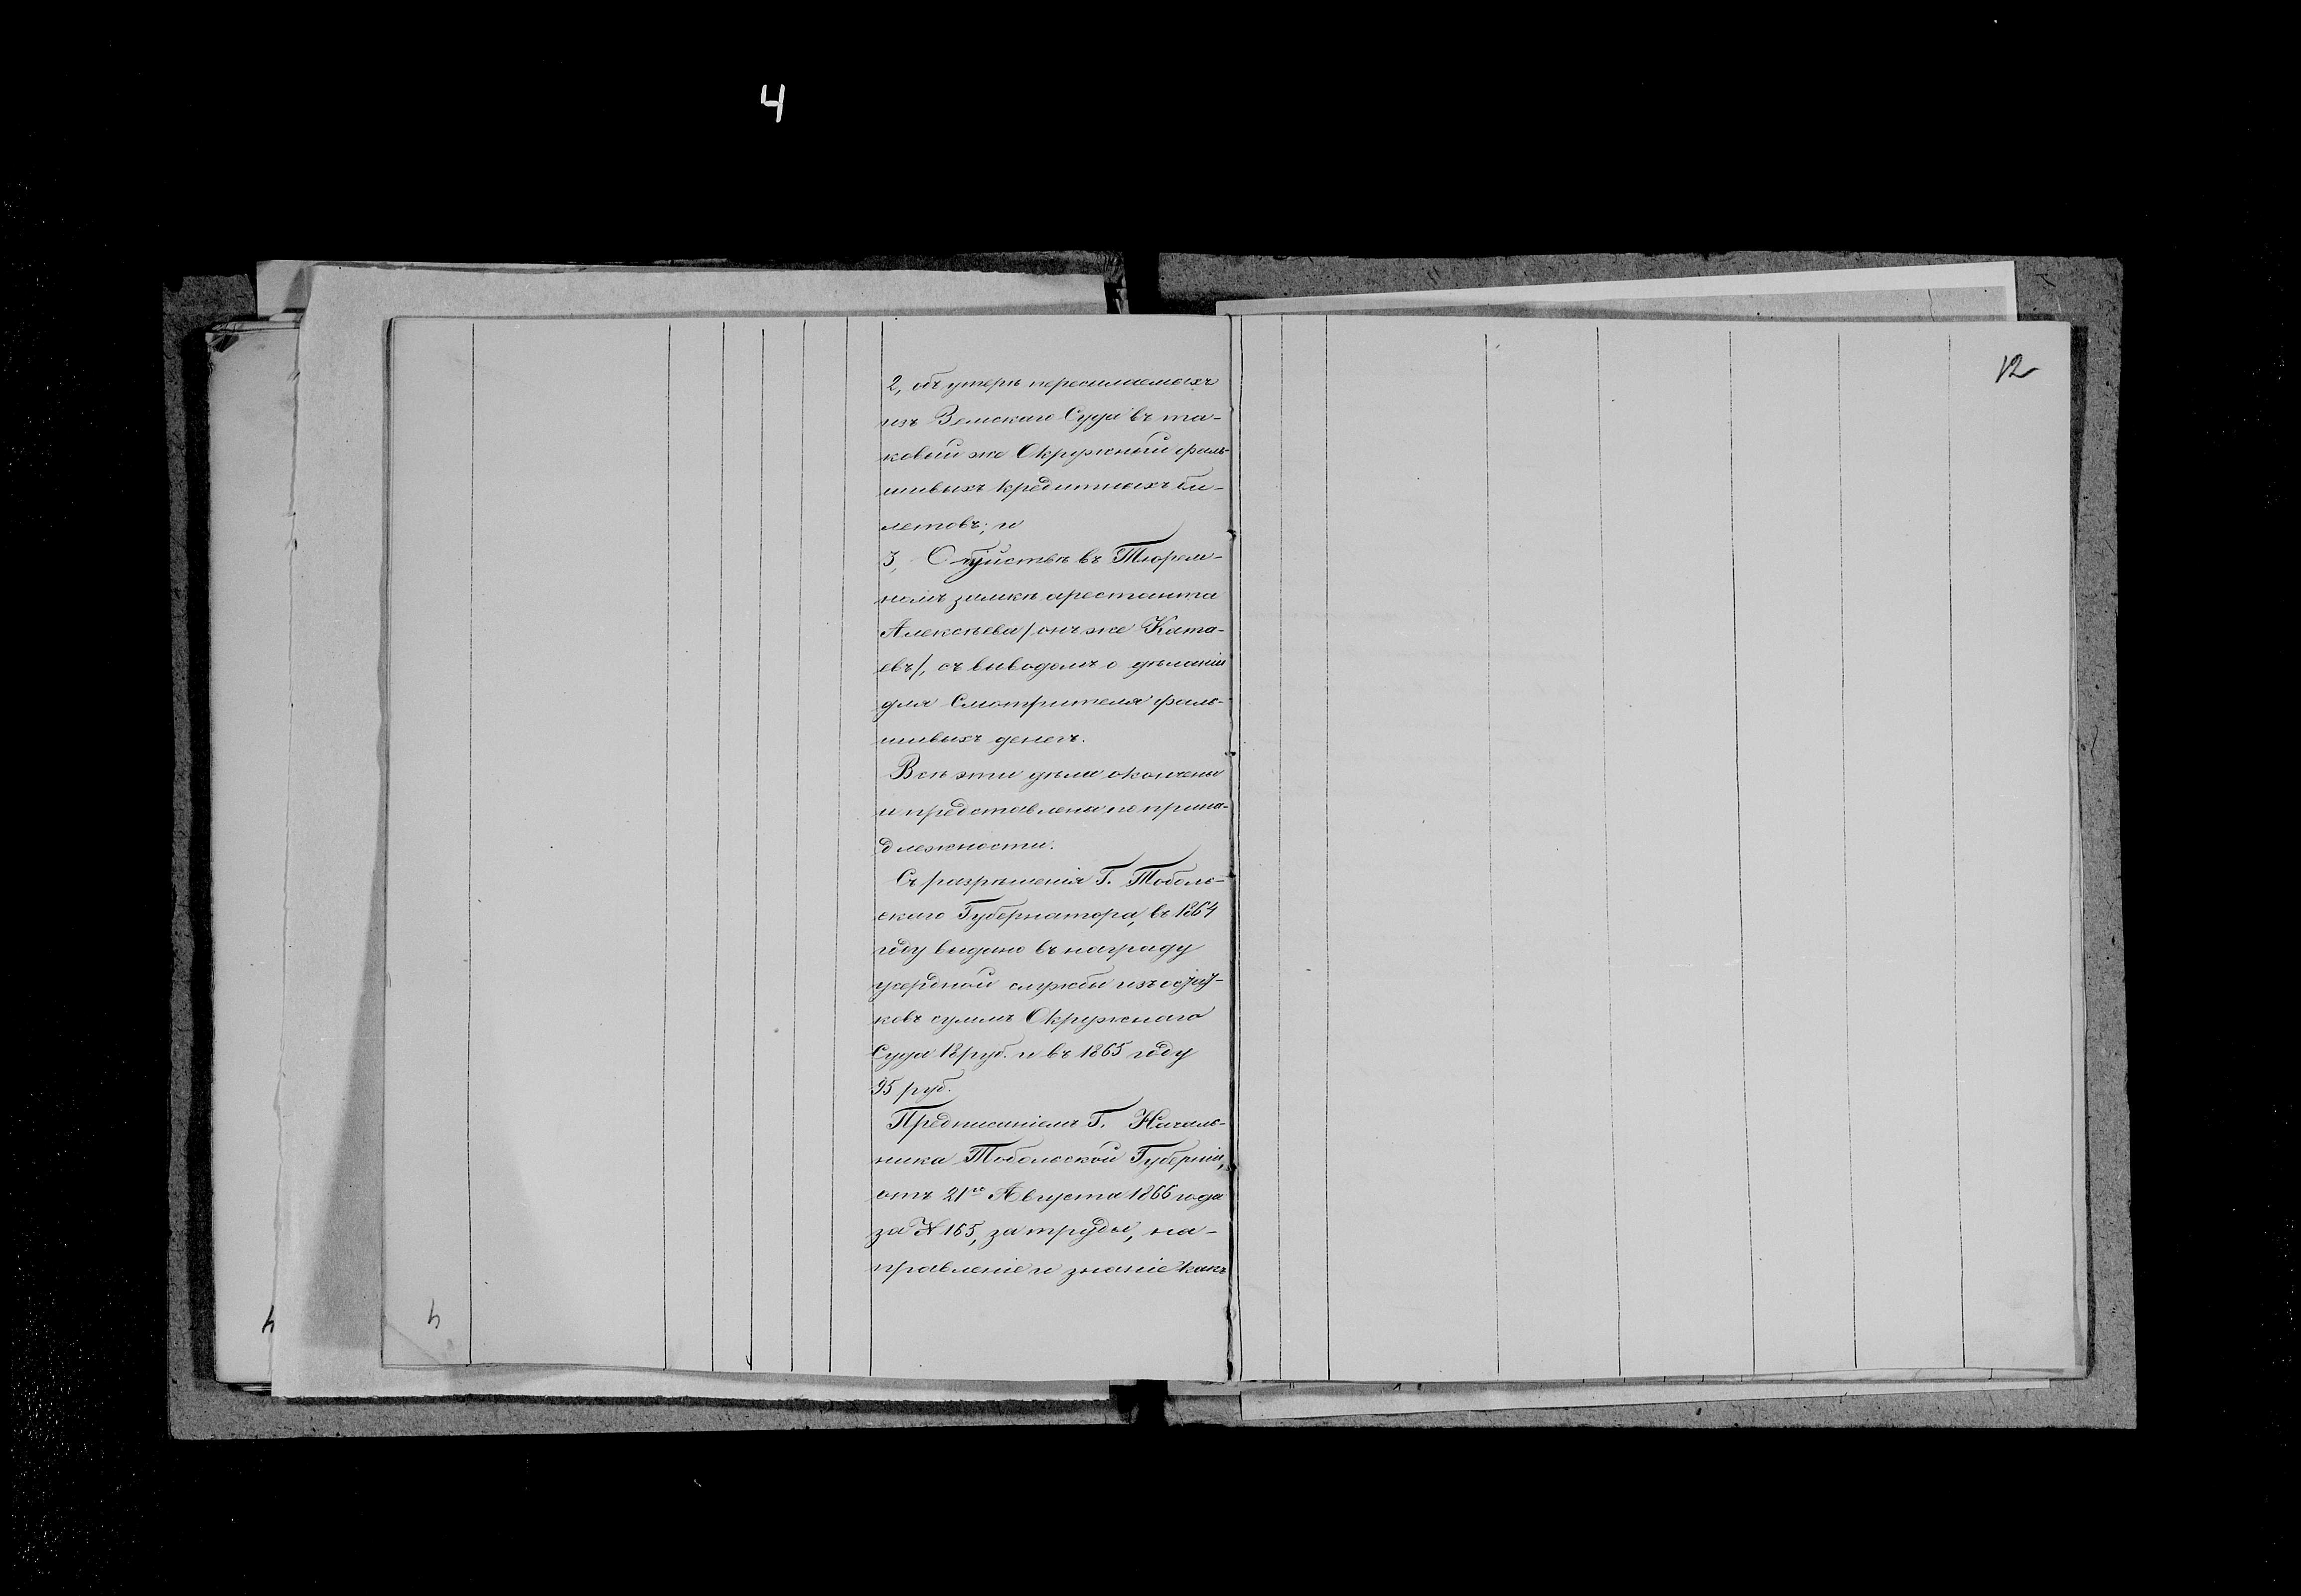 4
12
2, объ утерѣ пересылаемыхъ
изъ Земскаго Суда въ та-
ковый же Окружный фаль-
шивыхъ кредитныхъ би-
летовъ; и
3, О убійствѣ въ Тюрем-
номъ замкѣ арестанта
Алексѣева /онъ же Ката-
евъ/, съ выводомъ о дѣланіи
для Смотрителя фаль-
шивыхъ денегъ.
Всѣ эти дѣла окончены
и представлена по прина-
длежности.
Съ разрѣшенія Г. Тоболь-
скаго Губернатора, въ 1864
году выдано въ награду
усердной службы изъ
ковъ суммъ Окружнаго
Суда 18 руб. и въ 1865 году
35 руб.
Предписаніемъ Г. Началь-
ника Тобольской Губерніи,
отъ 21го Августа 1866 года
за № 165, за труды, на-
правленіе и знаніе какъ
4
4